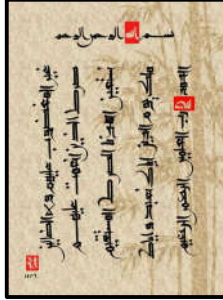 بسم الله الرحمن الرحيم
الحمد لله رب العلمين الرحمن الرحيم
ملك يوم الدين اياك نعبد و اياك
نستعين اهدنا الصرط المستقيم
صرط الذين انعمت عليهم
غير المغضوب عليهم ولا الضالين